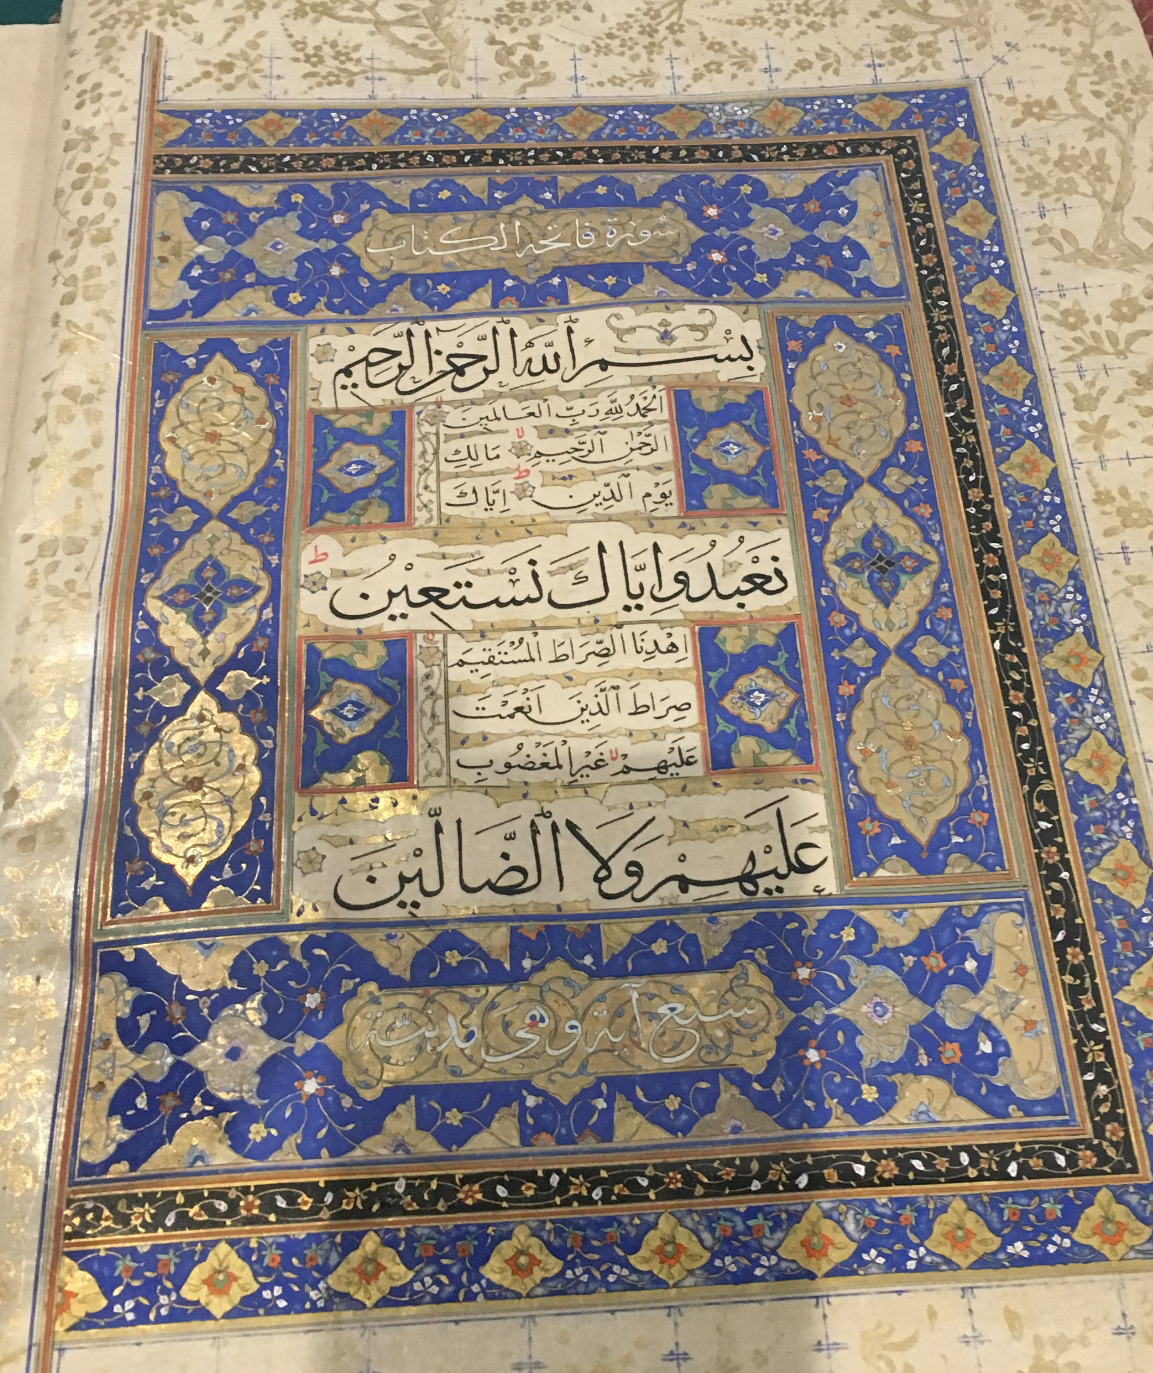 سورة فاتحة الكتاب
بِسْمِ اللَّهِ الرَّحْمٰنِ الرَّحِيْمِ
اَلْحَمْدُ لِلَّهِ رَبِّ الْعَالَمِينَ
الرَّحْمٰنِ الرَّحِيمِ لا مَالِكِ
يَوْمِ الدِّينِ ط اِيَّاكَ
نَعْبُدُ وَاِيَّاكَ نَسْتَعِيْنُ ط
اِهْدِنَا الصِّرَاطَ الْمُسْتَقِيمَ
صِرَاطَ الَّذِينَ اَنْعَمْتَ
عَلَيْهِمْ لا غَيْرِ الْمَغْضُوبِ
عَلَيْهِمْ وَلَا الضَّالِّيْنَ
سبع آية وهي مدنيّة